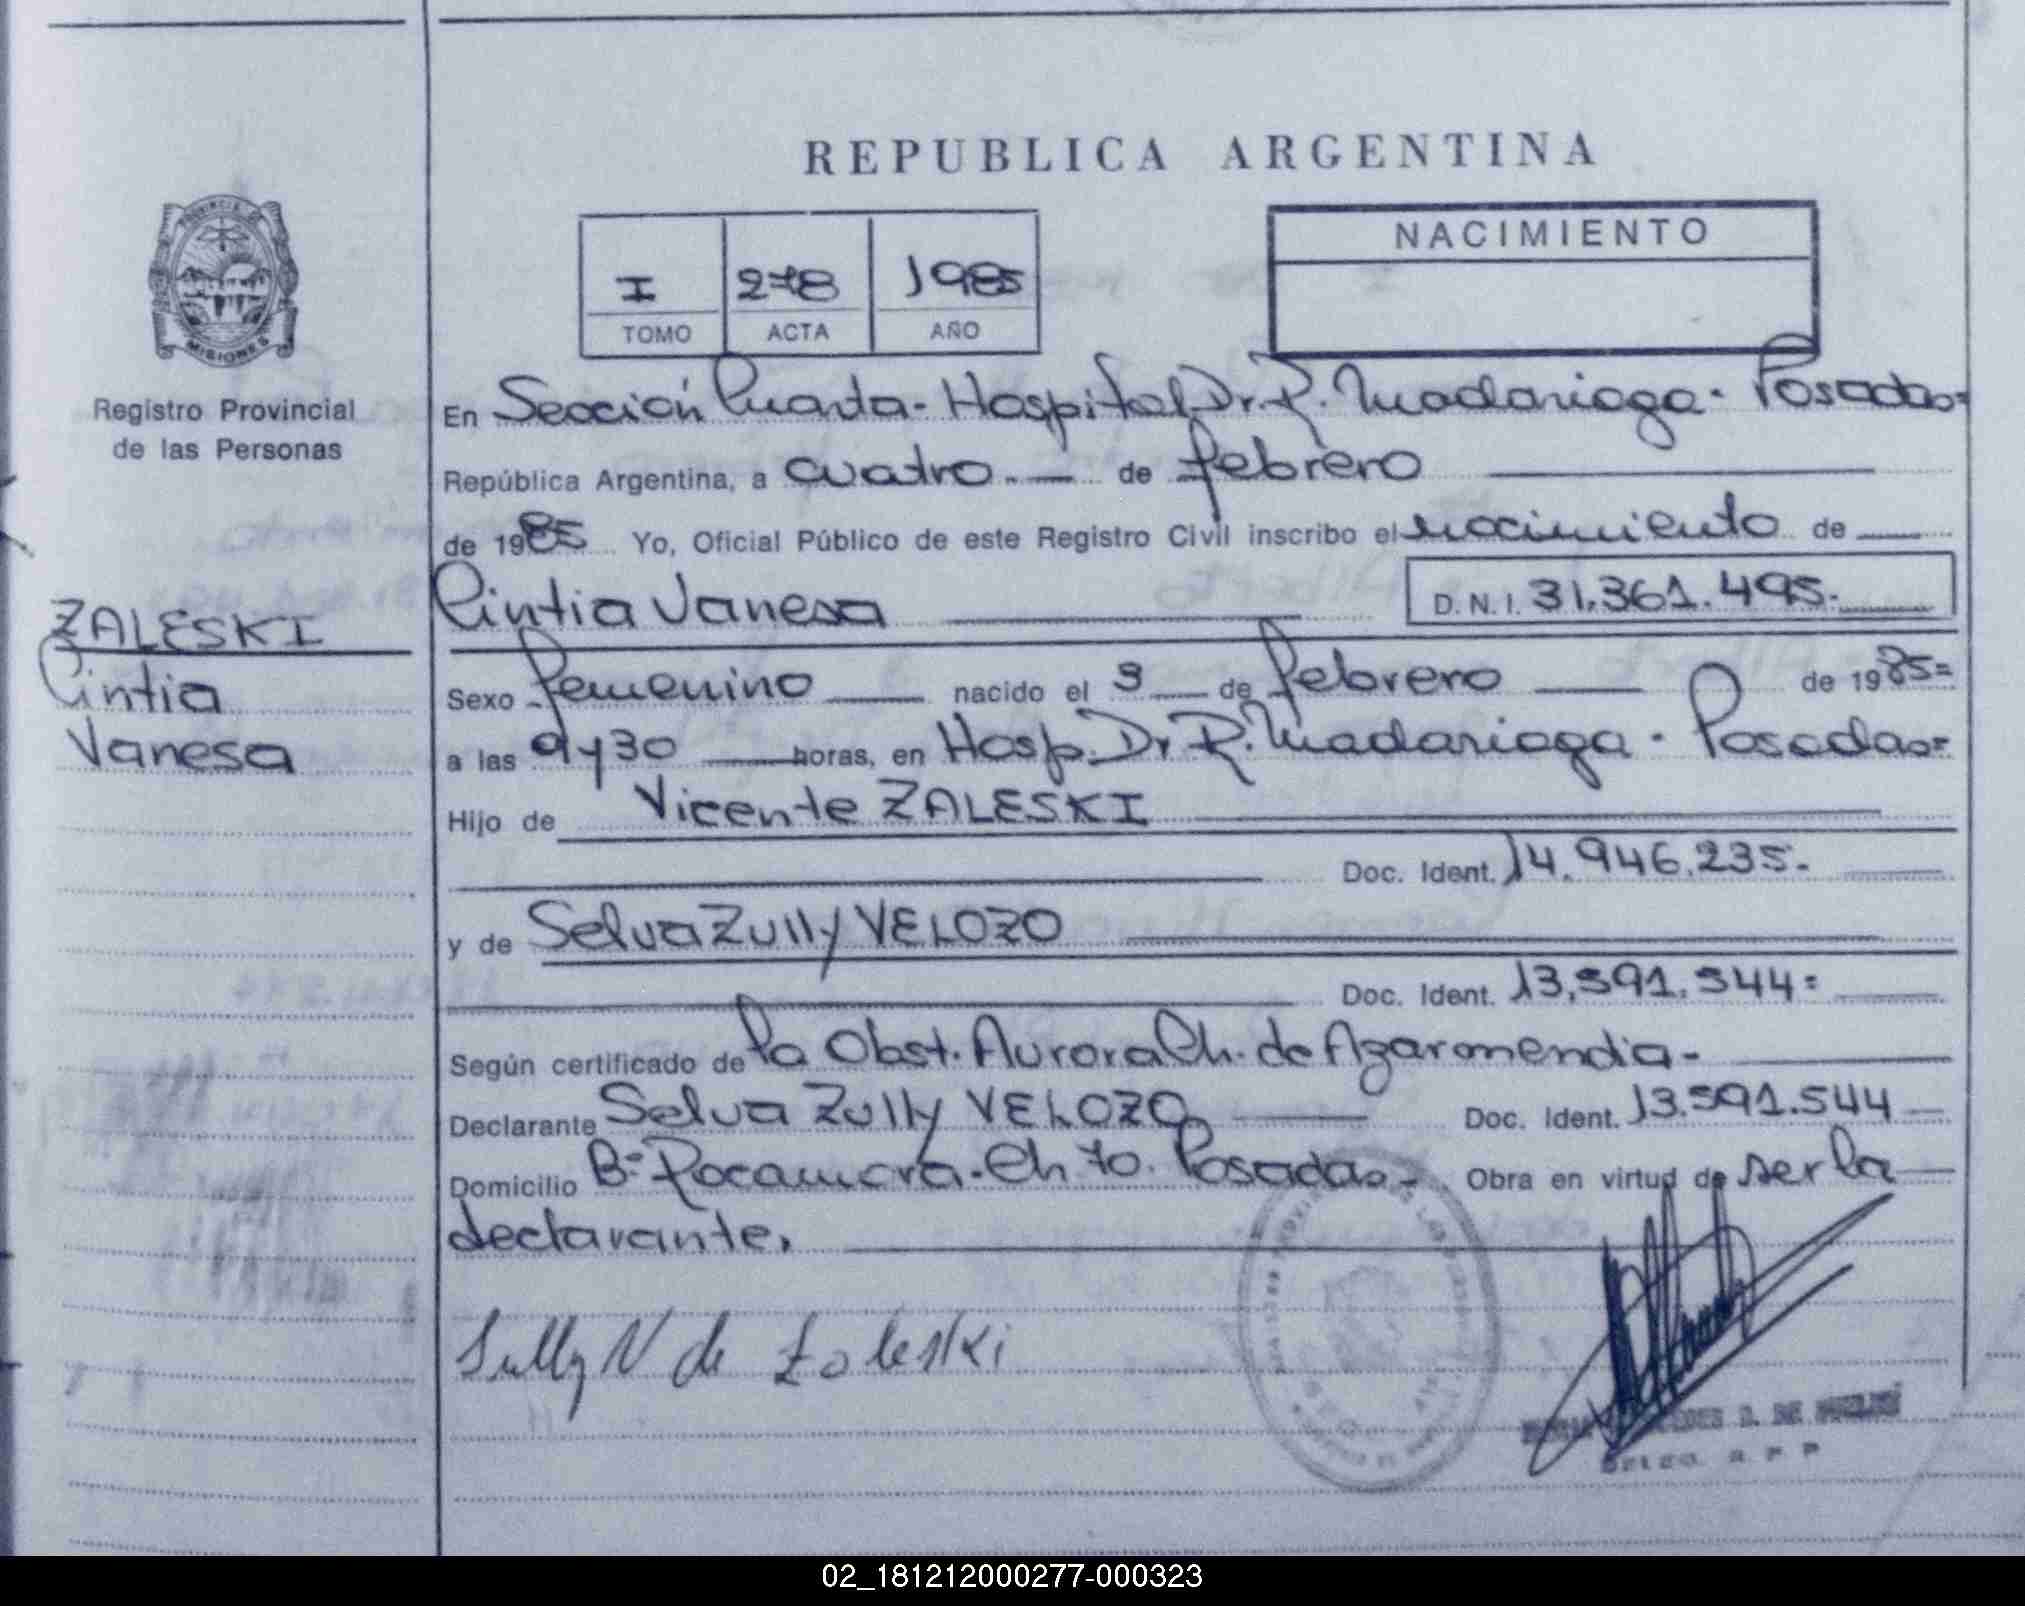 REPUBLICA ARGENTINA
PROVINCIA DE
MISIONES
Registro Provincial
de las Personas
I 278 1985
TOMO ACTA AÑO
NACIMIENTO
En Sección Cuarta - Hospital Dr. R. Madariaga - Posadas=
República Argentina, a cuatro.- de febrero
de 1985 Yo, Oficial Público de este Registro Civil inscribo el nacimiento de
Cintia Vanesa D.N.I. 31.361.495.
ZALESKI
Cintia
Vanesa
Sexo femenino nacido el 3 de febrero de 1985=
a las 9 y 30 horas, en Hosp. Dr R. Madariaga - Posadas=
Hijo de Vicente ZALESKI
Doc. Ident. 14.946.235.-
y de Selva Zully VELOZO
Doc. Ident. 13.591.544=
Según certificado de la Obst. Aurora Ch. de Agarmendia -
Declarante Selva Zully VELOZO Doc. Ident. 13.591.544
Domicilio B° Rocamora - Ch 70. Posadas.- Obra en virtud de ser la
declarante.
Sully V de Zaleski
D. DE
R. P. P
02_181212000277-000323